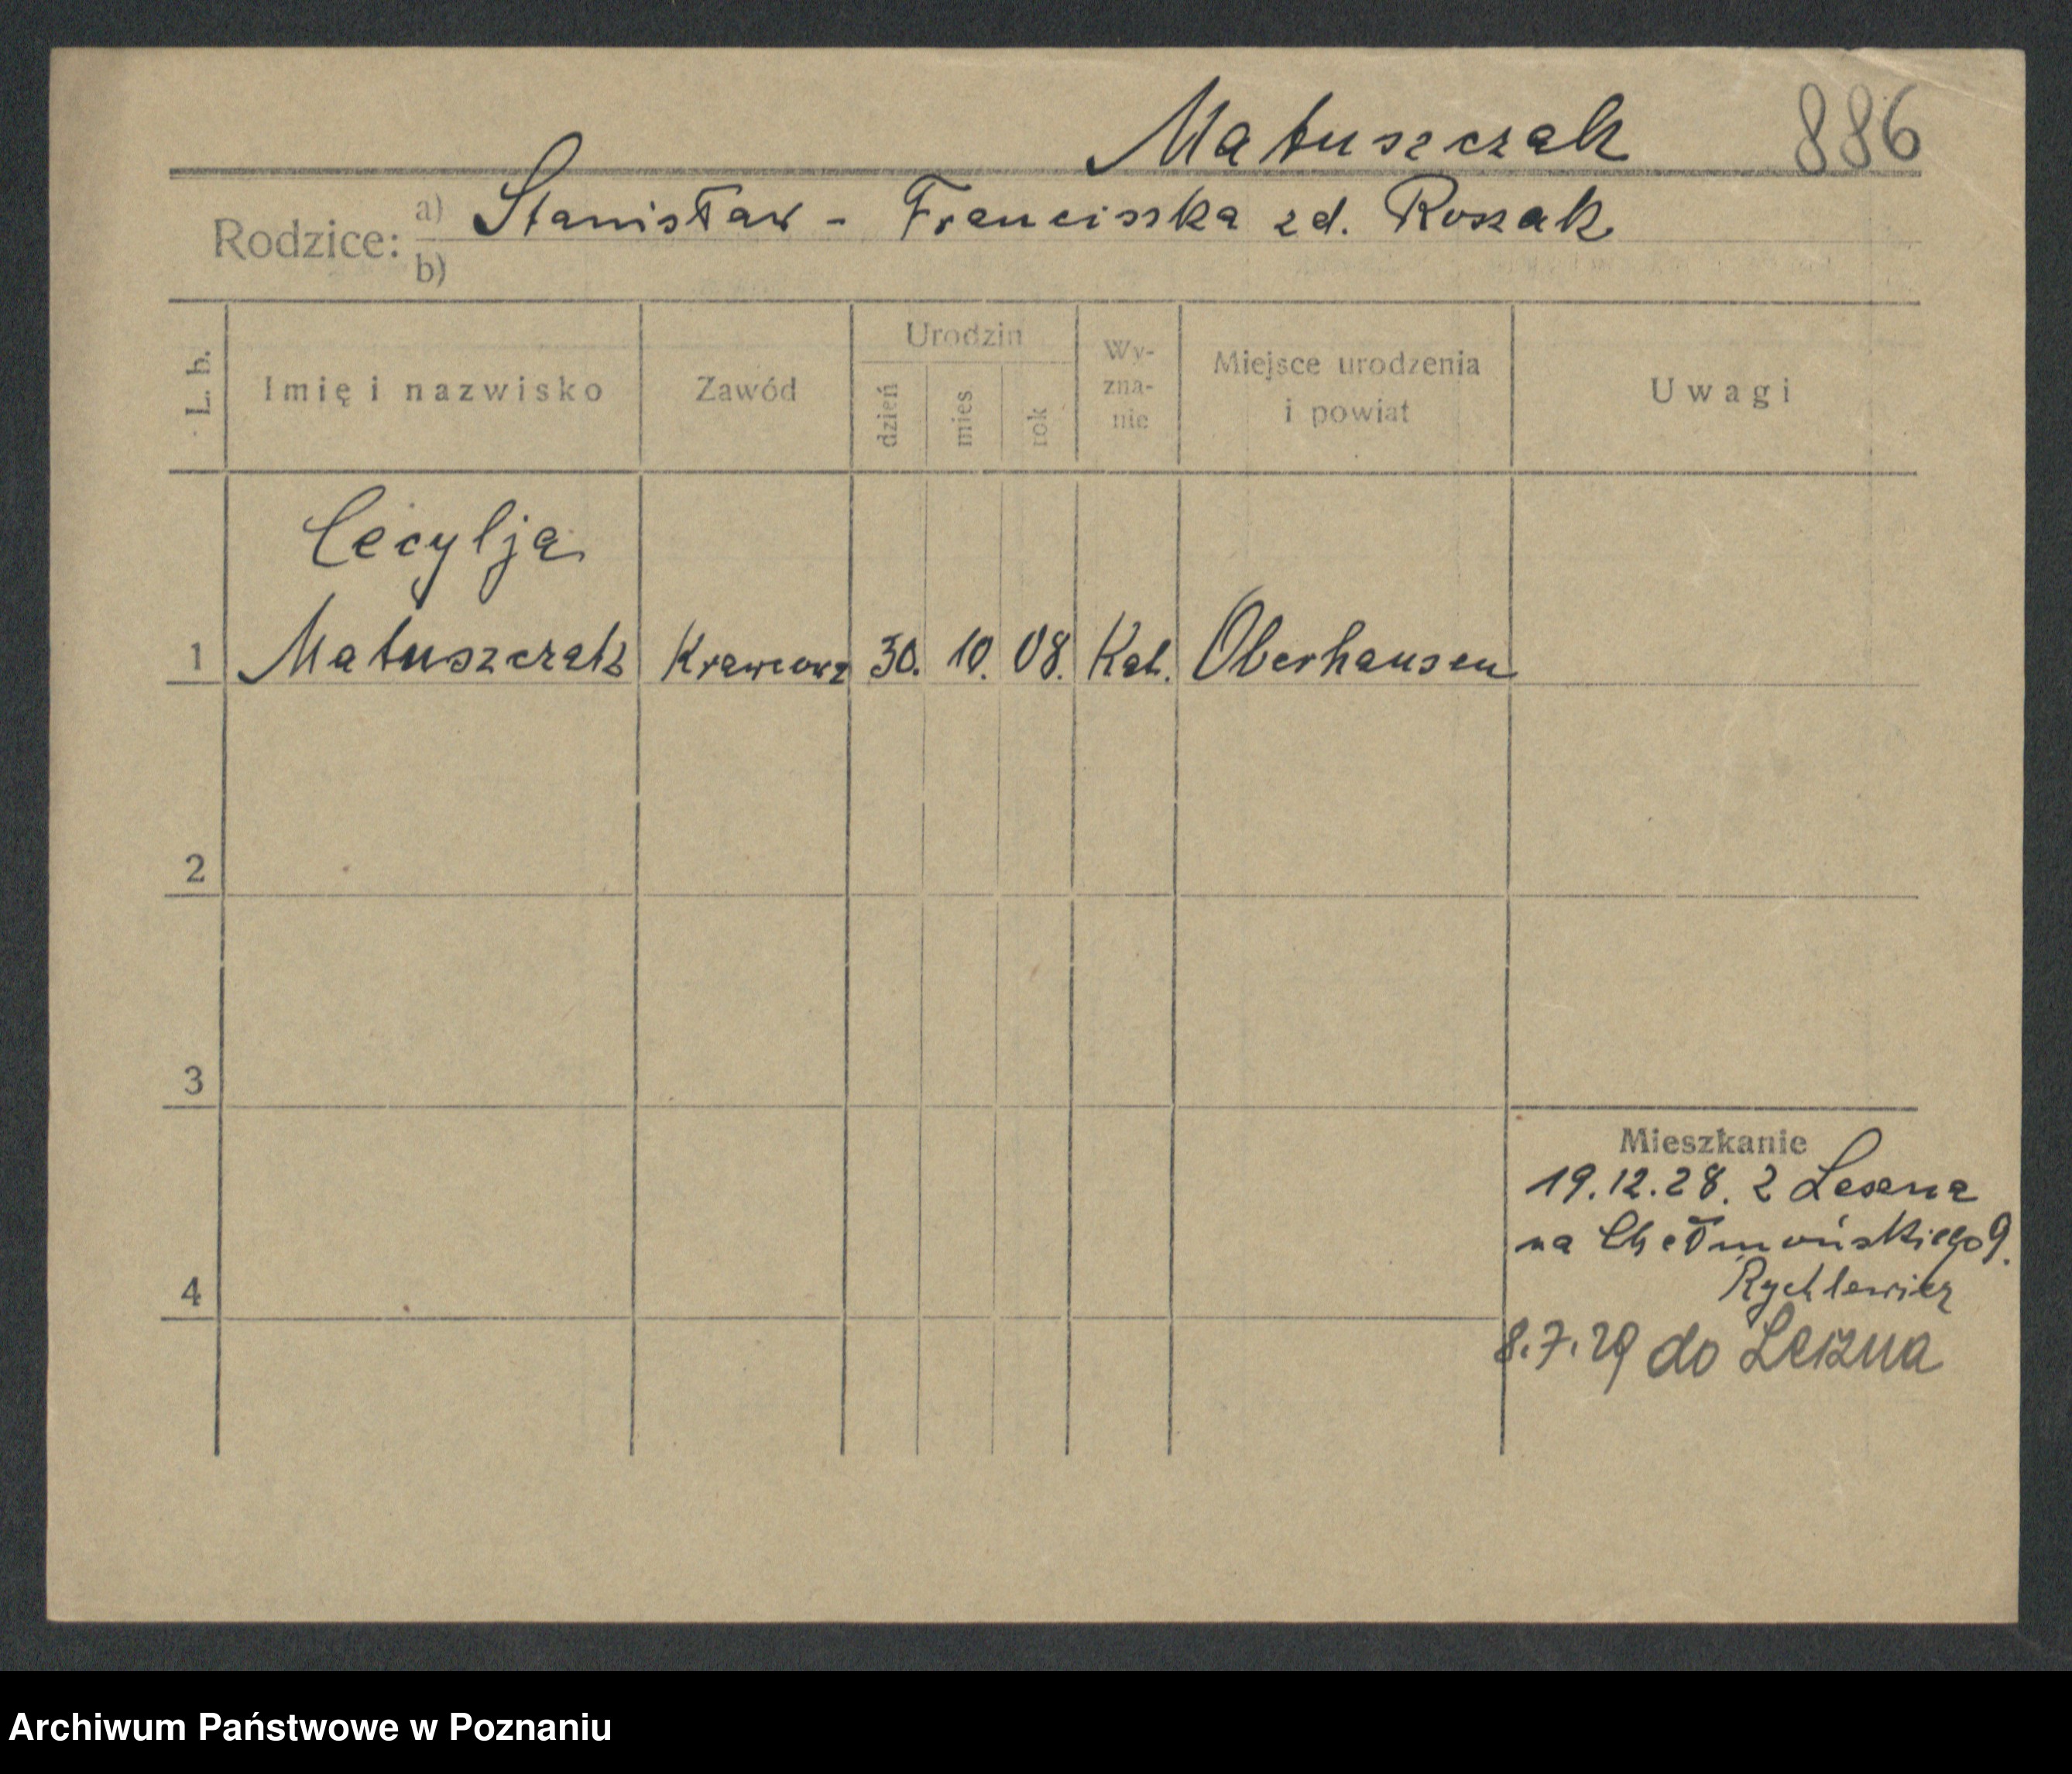 Matuszczak 886
Rodzice: a) Stanisław - Franciszka zd. Roszak
b)
L. b. Imię i nazwisko Zawód Urodzin dzień mies rok Wy-zna-nie Miejsce urodzenia i powiat Uwagi
Cecylja
1 Matuszczak Krawcowa 30. 10. 08. Kat. Oberhausen
2
3
Mieszkanie
19.12.28. z Leszna
na Chełmońskiego 9.
4 Rychlewicz
8.7.29 do Leszna
Archiwum Państwowe w Poznaniu